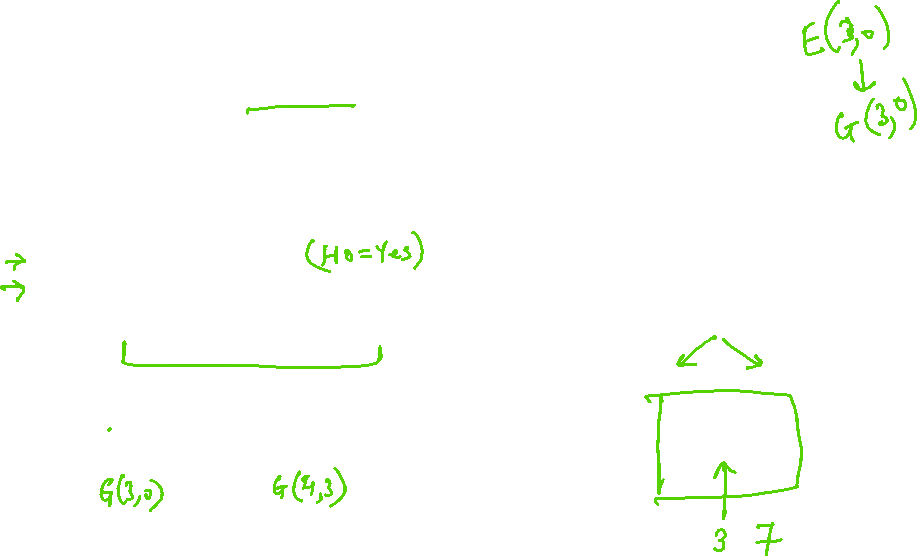 E(3,0)
G(3,0)
(Ho=Yes)
G(3,0) G(4,3)
3 7